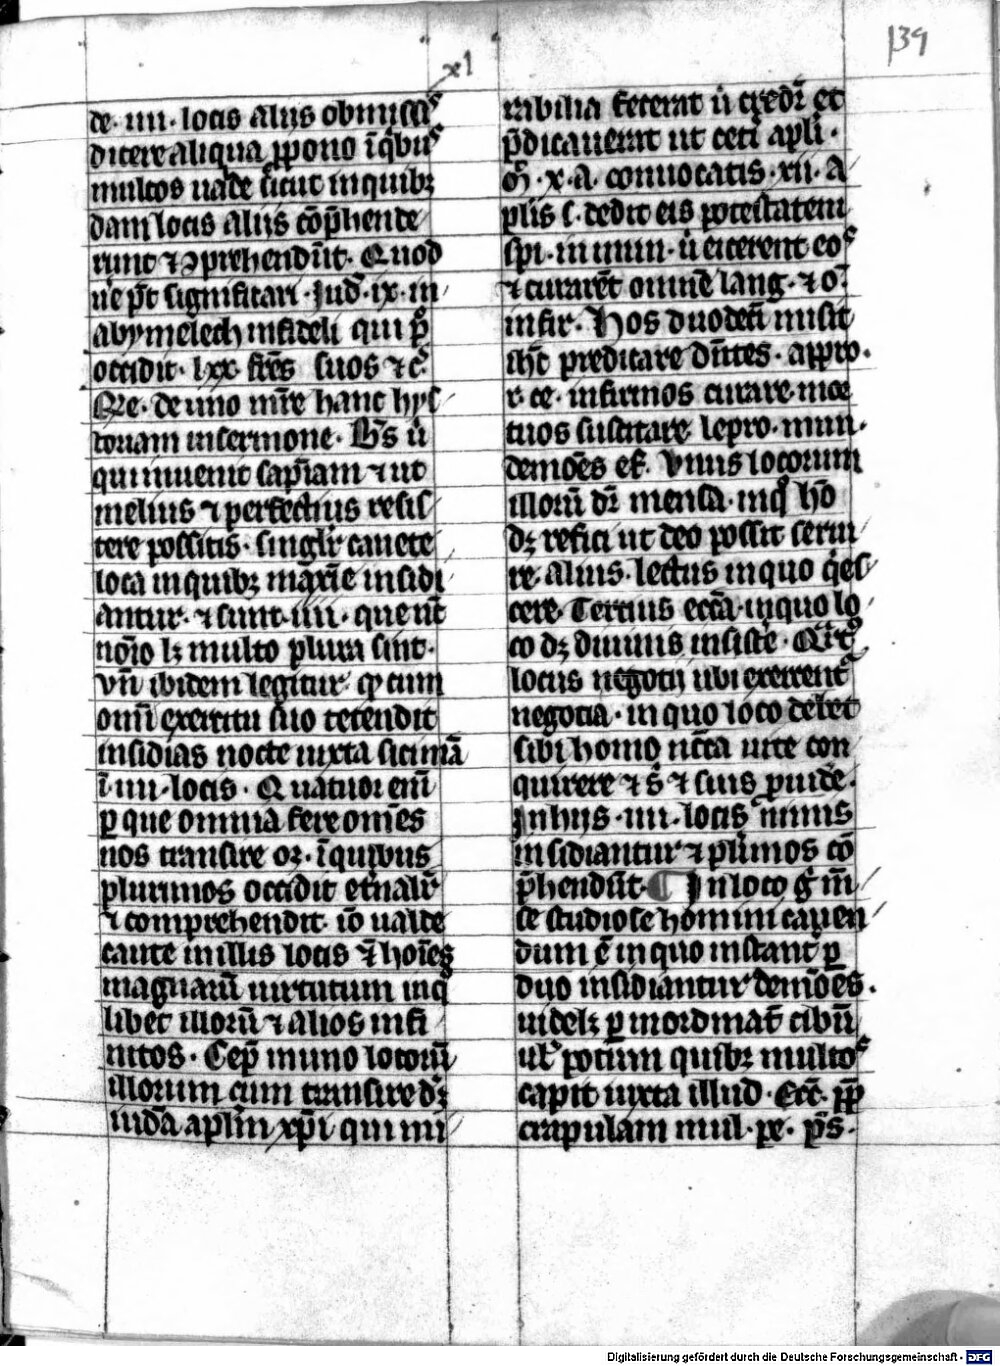 139
xl
de · iiii · locis aliis obmissis
dicere aliqua ꝓpono ī q̄bus
multos ualde sicut in quibꝫ
dam locis aliis cōp̄hende
runt ⁊ ↄprehendūt · Quod
ue pōt significari · Jud̄ · ix · in
abymelech infideli qui
occidit · lxx · fr̄es suos ⁊ c̄
Re · de uno mr̄e hanc hys
toriam in sermone ·
qui inuenit sapīam ⁊ ut
melius ⁊ perfectius resis
tere possitis · singlr̄ cauete
loca in quibꝫ maxīe insidi
antur · ⁊ sunt · iiii · que
lꝫ multo plura sint ·
vn̄ ibidem legitur ꝙ cum
omī exercitu suo tetendit
insidias nocte iuxta sicimā
ī · iiii · locis · Quatuor enī
ꝑ que omnia fere om̄es
nos transire oꝫ · ī quibus
plurimos occidit et̄nalr̄
⁊ comprehendit · iō ualde
caute in illis locis ē hoīes
magnarū uirtutum in q
libet illorū ⁊ alios infi
nitos · Cep̄ in uno locorū
illorum cum transire dꝫ
iudā aplm̄ xp̄i qui mi
rabilia fecerat ū credr̄ et
p̄dicauerat ut ceti apli ·
· x · a · conuocatis · xii · a
plis s · dedit eis potestatem
spi · in mun · ū eicerent eos
⁊ curarēt omnē lang · ⁊ o
infir · Hos duodecī misit
ihc̄ predicare dn̄tes · appro ·
r · ce · infirmos curare mor
tuos suscitare lepro · mun ·
demōes ef · Vnus locorum
illorū dr̄ mensa · in q hō
dꝫ refici ut deo possit serui
re · Alius · lectus in quo q̄es
cere · Tertius eccā · in quo lo
co dꝫ diuinis insistē ·
locus negotii ubi exercent
negotia · in quo loco debet
sibi homo nc̄cā uite con
quirere ⁊ s ⁊ suis ꝓuidē ·
In hiis · iiii · locis nimis
insidiantur ⁊ plīmos cō
p̄hendūt · ¶ In loco g̊ m̄
se studiose homini cauen
dum ē in quo instant ꝑ
duo insidiantur demōes ·
uidelꝫ ꝑ inordinat̄ cibū
ul̄ potum quibꝫ multos
capit iuxta illud · Ecc̄ · ꝓp̄
crapulam mul · pe · p̄s ·
Digitalisierung gefördert durch die Deutsche Forschungsgemeinschaft - DFG